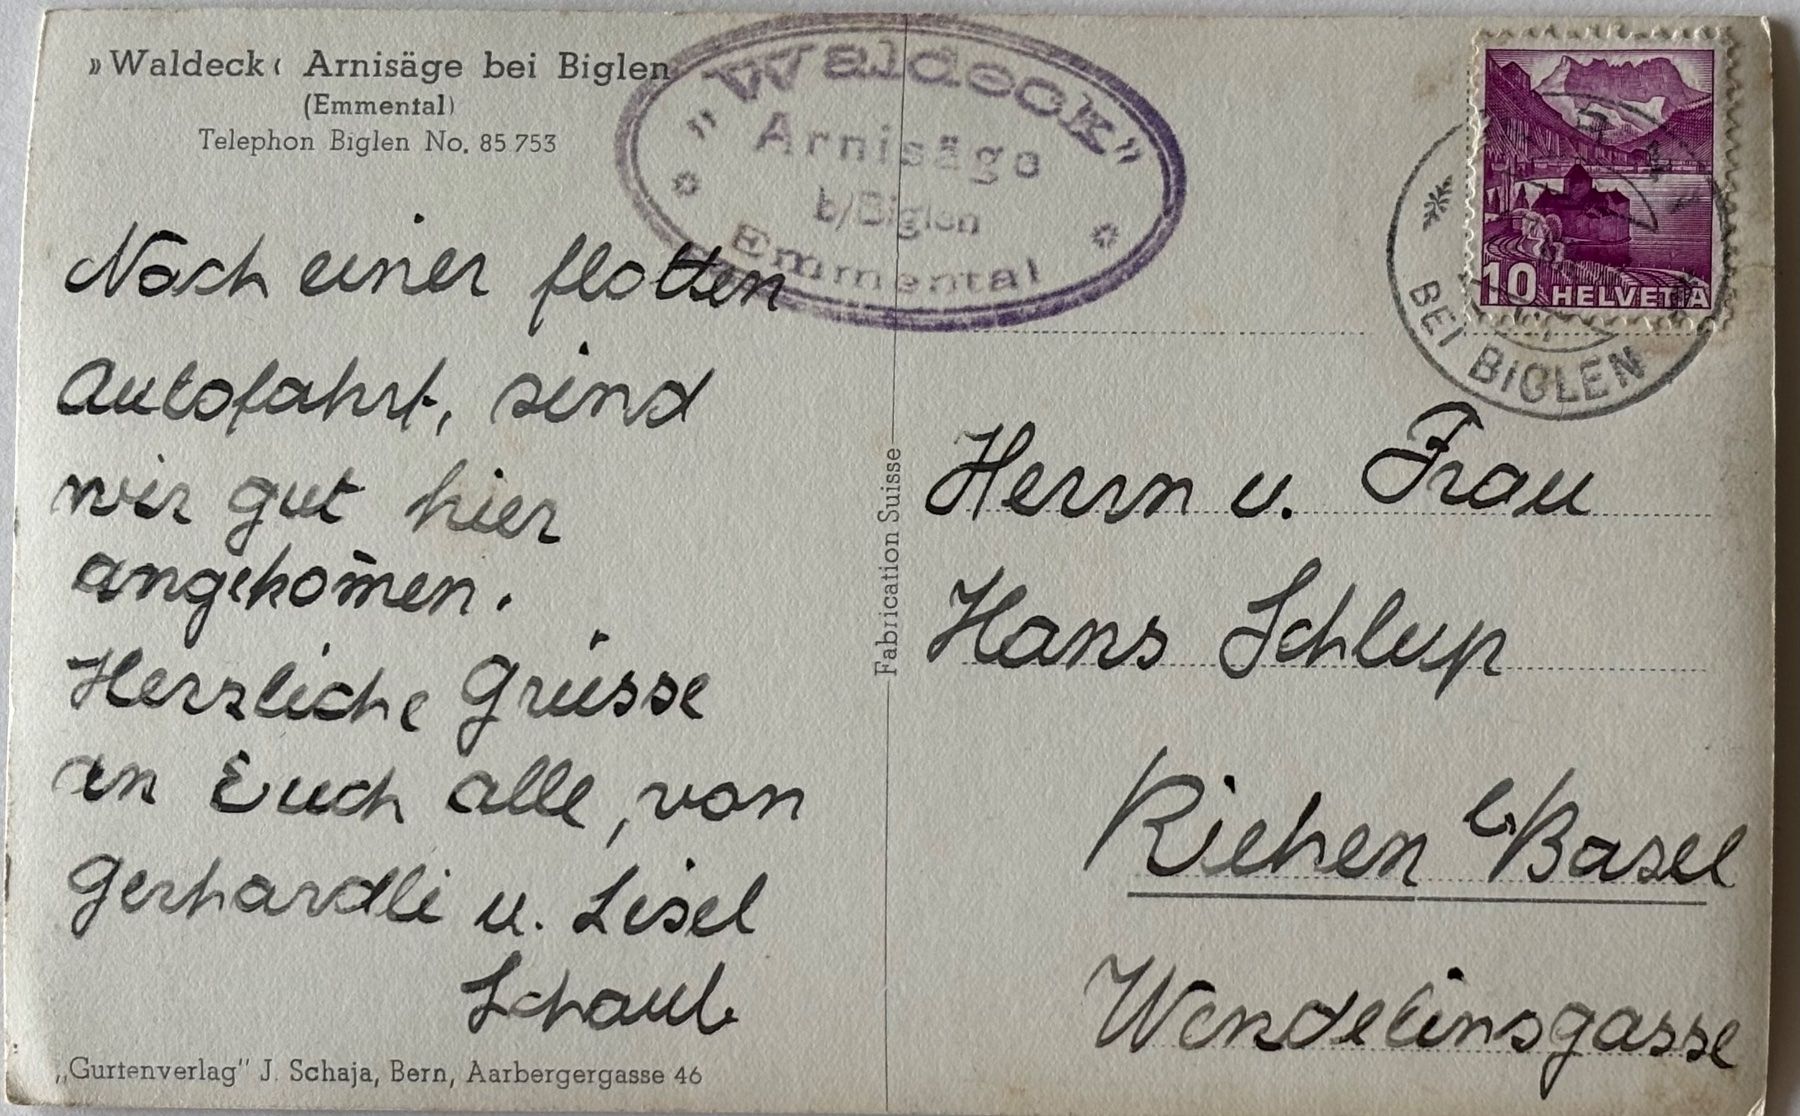 »Waldeck‹ Arnisäge bei Biglen
(Emmental)
Telephon Biglen No. 85 753
"Waldeck"
Arnisäge
b/Biglen
Emmental
10 HELVETIA
BEI BIGLEN
Nach einer flotten
Autofahrt, sind
wir gut hier
angekom̄en.
Herzliche Grüsse
an Euch alle, von
Gerhardli u. Lisel
Schaub
„Gurtenverlag" J. Schaja, Bern, Aarbergergasse 46
Fabrication Suisse
Herrn u. Frau
Hans Schlup
Riehen b/Basel
Wendelinsgasse